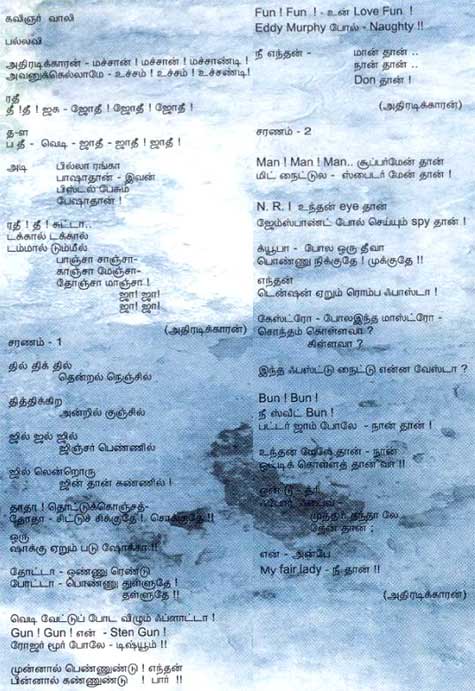 கவிஞர் வாலி
பல்லவி
அதிரடிக்காரன் - மச்சான் ! மச்சான் ! மச்சாண்டி !
அவனுக்கெல்லாமே - உச்சம் ! உச்சம் ! உச்சண்டி!
ரதீ
தீ !தீ ! ஜக - ஜோதீ ! ஜோதீ ! ஜோதீ !
த-ள
ப தீ - வெடி - ஜாதீ - ஜாதீ ! ஜாதீ !
அடி பில்லா ரங்கா
பாஷாதான் - இவன்
பிஸ்டல் பேசும்
பேஷாதான் !
ரதீ ! தீ ! சுட்டா..
டக்கால் டக்கால்
டம்மால் டும்மீல்
பாஞ்சா சாஞ்சா-
காஞ்சா மேஞ்சா-
தோஞ்சா மாஞ்சா !
ஜா! ஜா!
ஜா! ஜா!
(அதிரடிக்காரன்)
சரணம் - 1
தில் திக் தில்
தென்றல் நெஞ்சில்
தித்திக்கிற
அன்றில் குஞ்சில்
ஜில் ஜல் ஜில்
ஜிஞ்சர் பெண்ணில்
ஜில் லென்றொரு
ஜின் தான் கண்ணில் !
தாதா ! தொட்டுக்கொஞ்சத்-
தோதா - சிட்டுச் சிக்குதே !. சொக்குதே !!
ஒரு
ஷாக்கு ஏறும் படு ஷோக்கா !!
தோட்டா - ஒண்ணு ரெண்டு
போட்டா - பொண்ணு துள்ளுதே !
தள்ளுதே !!
வெடி வேட்டுப் போட விழும் ஃப்ளாட்டா !
Gun ! Gun ! என் - Sten Gun !
ரோஜர் மூர் போலே - டிஷ்யூம் !!
முன்னால் பெண்ணுண்டு ! எந்தன்
பின்னால் கண்ணுண்டு ! பார் !!
Fun ! Fun ! - உன் Love Fun !
Eddy Murphy போல் - Naughty !!
நீ எந்தன் - மான் தான் ..
நான் தான் ..
Don தான் !
(அதிரடிக்காரன்)
சரணம் - 2
Man ! Man ! Man.. சூப்பர்மேன் தான்
மிட் நைட்டுல - ஸ்பைடர் மேன் தான் !
N. R. I உந்தன் eye தான்
ஜேம்ஸ்பாண்ட் போல் செய்யும் spy தான் !
க்யூபா - போல ஒரு தீவா
பொண்ணு நிக்குதே ! முக்குதே !!
எந்தன்
டென்ஷன் ஏறும் ரொம்ப ஃபாஸ்டா !
கேஸ்ட்ரோ - போலஇந்த மாஸ்ட்ரோ -
சொந்தம் கொள்ளவா ?
கிள்ளவா ?
இந்த ஃபஸ்ட்டு நைட்டு என்ன வேஸ்டா ?
Bun ! Bun !
நீ ஸ்வீட் Bun !
பட்டர் ஜாம் போலே - நான் தான் !
உந்தன் மேலே தான் - நான்
ஒட்டிக் கொள்ளத் தான் வா !!
தேன் தான் ;
என் - அன்பே
My fair lady - நீ-தான் !!
(அதிரடிக்காரன்)